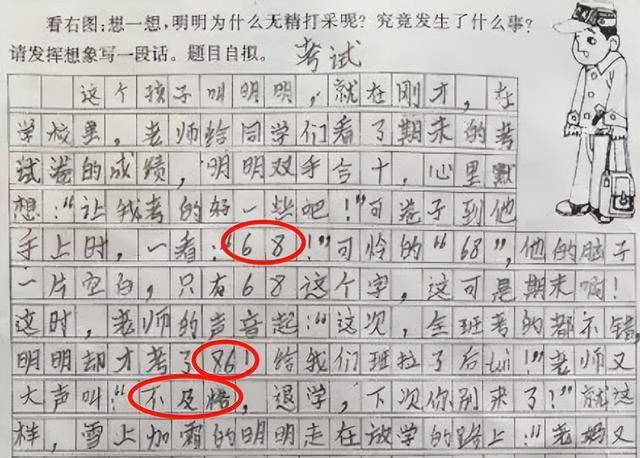 看右图:想一想,明明为什么无精打采呢?究竟发生了什么事?
请发挥想象写一段话。题目自拟。
考试
这个孩子叫明明,就在刚才,在
学校里,老师给同学们看了期末的考
试卷的成绩,明明双手合十,心里默
想:“让我考的好一些吧!”可卷子到他
手上时,一看:“68!”可怜的“68”,他的脑子
一片空白,只有68这个字,这可是期末啊!
这时,老师的声音起:“这次,全班考的都不错,
明明却才考了86!给我们班拉了后tui!”老师又
大声叫:“不及格,退学,下次你别来了!”就这
样,雪上加霜的明明走在放学的路上:“老妈又